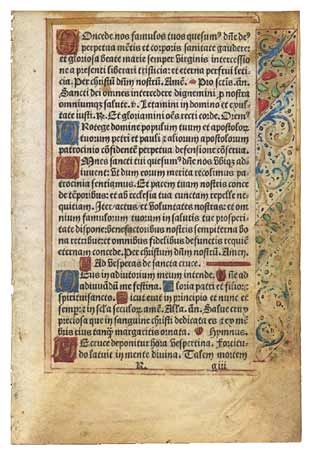 Oncede nos famulos tuos quesumꝰ dñe de
perpetua mẽtis et corporis sanitate gaudere:
et gloriosa beate marie semper virginis intercessio
ne a presenti liberari tristicia: et eterna perfrui leti
cia. Per christum dñm nostrũ. Amẽ. Pro scis̃ añ.
Sancti dei omnes intercedere dignemini pro nostra
omniumqꝫ salute. ℣. Letamini in domino et exul
tate iusti. ℟. Et gloriamini oẽs recti corde. Oremꝰ
Rotege domine populum tuum et apostolorꝫ
tuorum petri et pauli ⁊ aliorum apostolorum
patrocinio cõfidentẽ perpetua defensione cõserua.
Mnes sancti tui quesumꝰ dñe nos vbiqꝫ ad
iuuent: vt dum eorum merita recolimus pa
trocinia sentiamus. Et pacem tuam nostris conce
de tẽporibus: et ab ecclesia tua cunctam repelle ne
quitiam. Iter: actus et voluntates nostras: et om
nium famulorum tuorum in salutis tue prosperi
tate dispone: benefactoribus nostris sempiterna bo
na retribue: et omnibus fidelibus defunctis requiẽ
eternam concede. Per christum dñm nostrũ. Amen.
Ad vesperas de sancta cruce.
Eus in adiutorium meum intende. ñe ad
adiuuãdũ me festina. loria patri et filio:
spirituisancto. icut erat in principio et nunc et
semper: ⁊ in scl̃a seculorꝫ. amẽ. Alla. añ. Salue crux
preciosa que in sanguine christi dedicata es: et ex mẽ
bris eius tanqꝫ margaritis ornata. Hymnus.
E cruce deponitur hora vespertina. Fortitu
do latuit in mente diuina. Talem mortem
R. giii